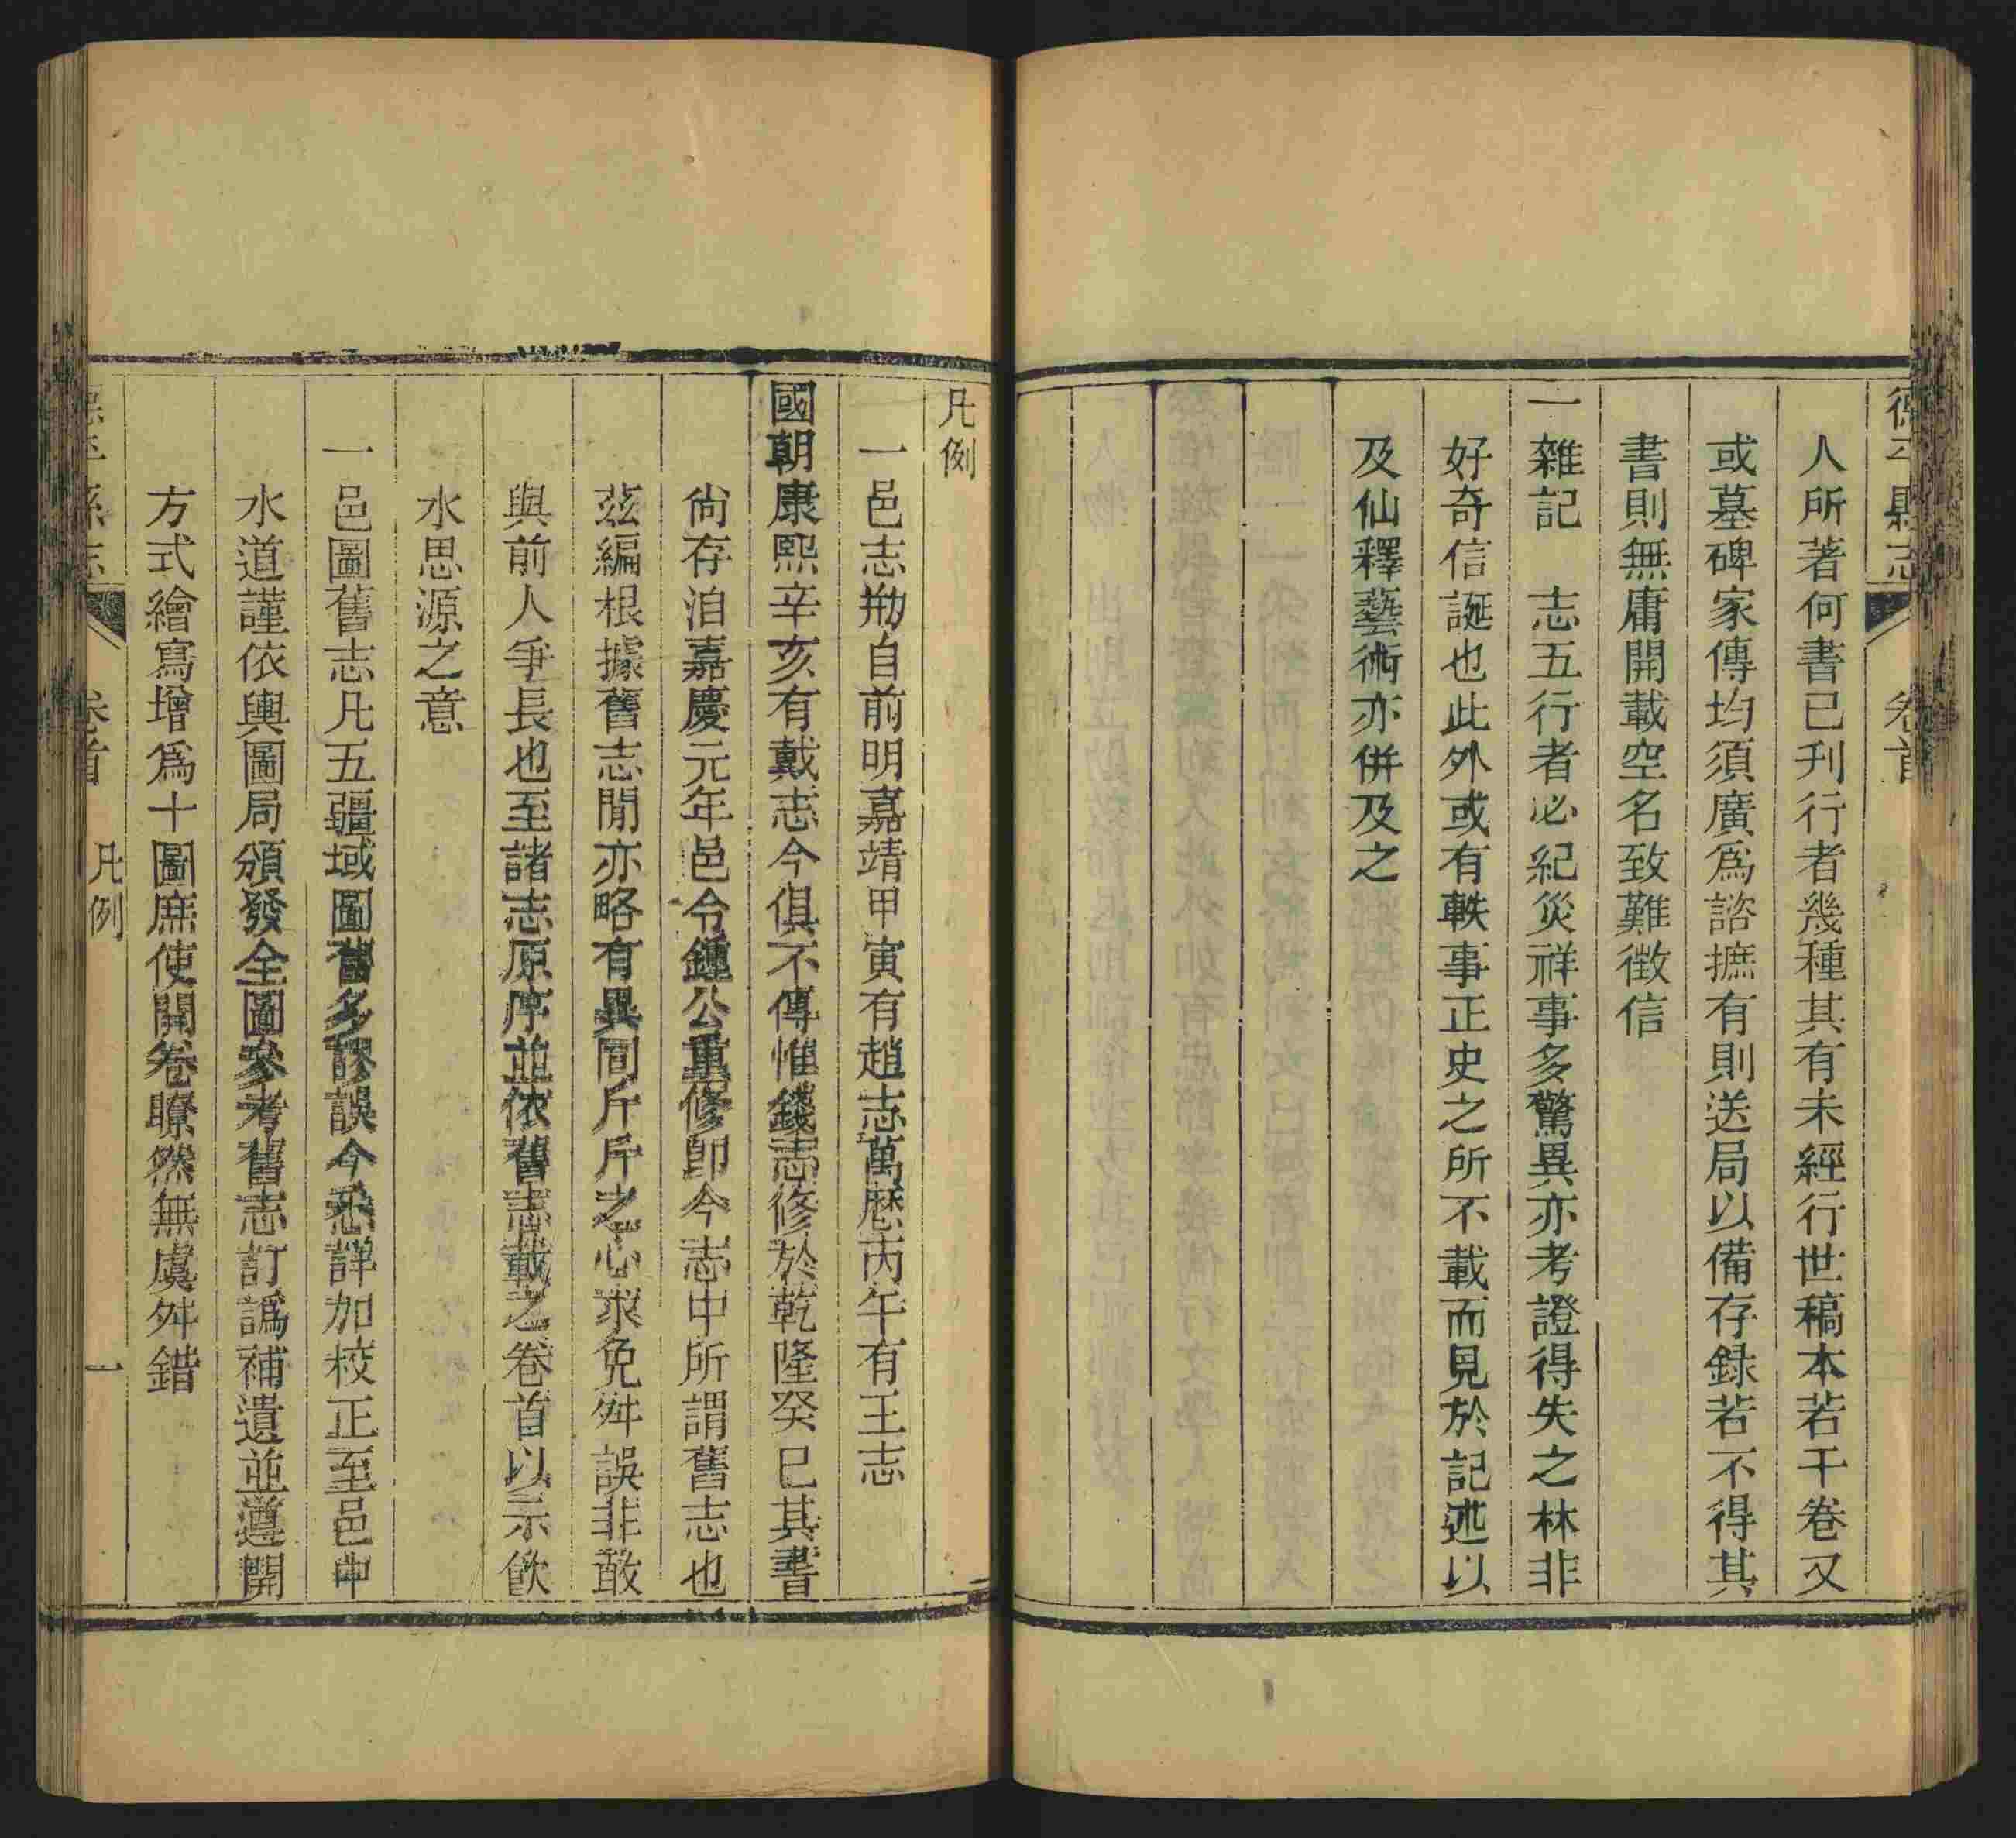 德平縣志 卷首
人所著何書已刋行者幾種其有未經行世稿本若干卷又
或墓碑家傳均須廣爲諮摭有則送局以備存録若不得其
書則無庸開載空名致難徵信
一雜記 志五行者必紀災祥事多驚異亦考證得失之林非
好奇信誕也此外或有軼事正史之所不載而見於記述以
及仙釋藝術亦併及之
凡例
一邑志剏自前明嘉靖甲寅有趙志萬厯丙午有王志
國朝康熙辛亥有戴志今俱不傳惟錢志修於乾隆癸巳其書
尙存洎嘉慶元年邑令鍾公重修卽今志中所謂舊志也
茲編根據舊志閒亦略有異同斤斤之心求免舛誤非敢
與前人爭長也至諸志原序並依舊志載之卷首以示飲
水思源之意
一邑圖舊志凡五疆域圖舊多謬誤今悉詳加校正至邑中
水道謹依輿圖局頒發全圖參考舊志訂譌補遺並遵開
方式繪寫增爲十圖庶使開卷瞭然無虞舛錯
德平縣志 卷首 凡例 一